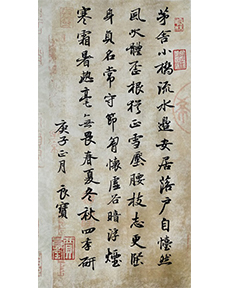 茅舍小橋流水邊安居落戶自怡然
風吹體歪根猶正雪壓腰枝志更堅
身負名常守節胸懷虛谷暗浮煙
寒霜暑熱毫無畏春夏冬秋四季研
庚子正月良寶